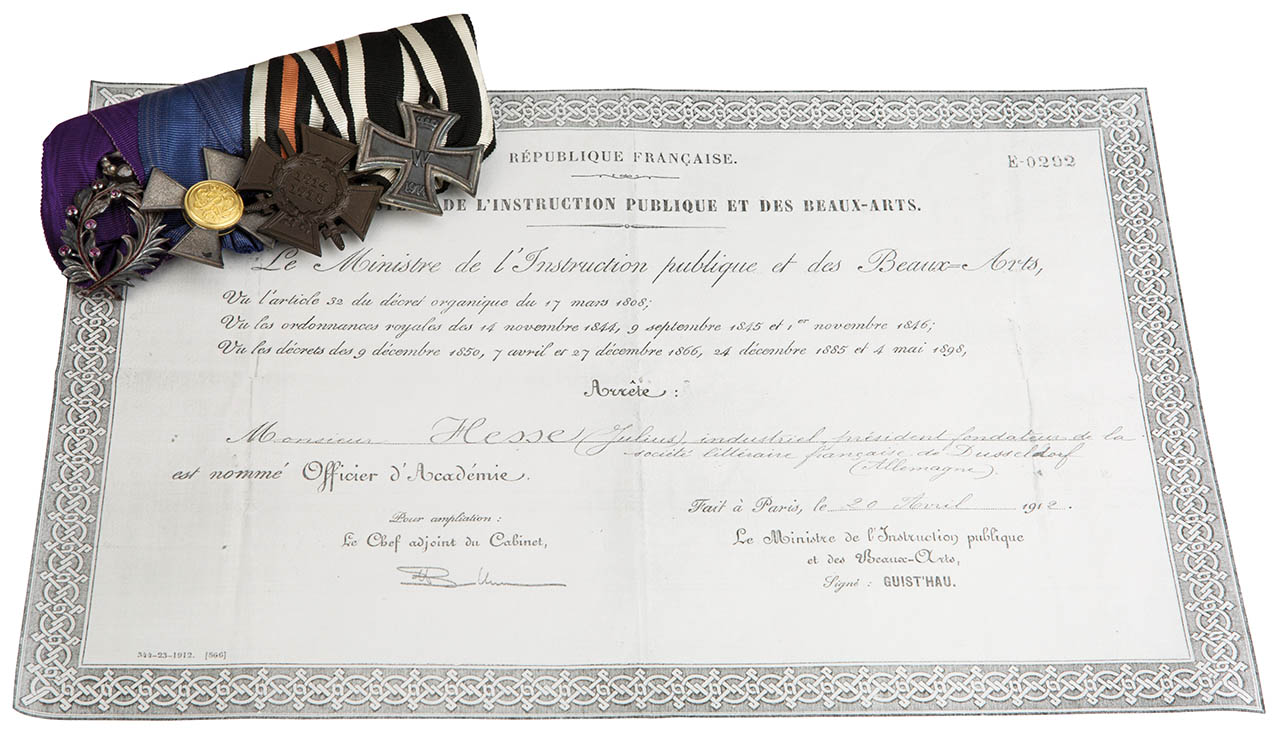 RÉPUBLIQUE FRANÇAISE.
E-0292
DE L'INSTRUCTION PUBLIQUE ET DES BEAUX-ARTS.
Le Ministre de l'Instruction publique et des Beaux=Arts,
Vu l'article 32 du décret organique du 17 mars 1808;
Vu les ordonnances royales des 14 novembre 1844, 9 septembre 1845 et 1er novembre 1846;
Vu les décrets des 9 décembre 1850, 7 avril et 27 décembre 1866, 24 décembre 1885 et 4 mai 1898,
Arrête :
Monsieur Hesse (Julius), industriel, président fondateur de la
société littéraire française de Dusseldorf
(Allemagne).
est nommé Officier d'Académie.
Fait à Paris, le 20 Avril 1912.
Pour ampliation :
Le Chef adjoint du Cabinet,
Le Ministre de l'Instruction publique
et des Beaux-Arts,
Signé : GUIST'HAU.
544-23-1912. [866]
1914
1918
W